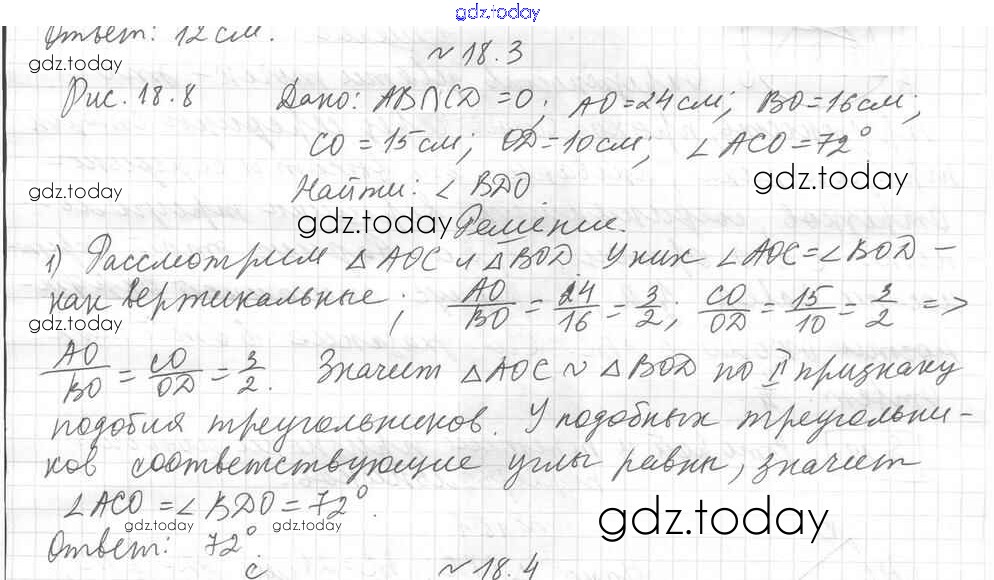 gdz.today
Ответ: 12 см.
gdz.today
№ 18.3
Рис. 18.8 Дано: AB∩CD = O; AO = 24 см; BO = 16 см;
CO = 15 см; OD = 10 см; ∠ACO = 72°
gdz.today
gdz.today
Найти: ∠BDO
gdz.today
Решение.
1) Рассмотрим △AOC и △BOD. У них ∠AOC = ∠BOD –
как вертикальные; AO/BO = 24/16 = 3/2; CO/OD = 15/10 = 3/2 =>
gdz.today
AO/BO = CO/OD = 3/2. Значит △AOC ~ △BOD по II признаку
подобия треугольников. У подобных треугольни-
ков соответствующие углы равны, значит
∠ACO = ∠BDO = 72°.
gdz.today
gdz.today
gdz.today
Ответ: 72°.
№ 18.4